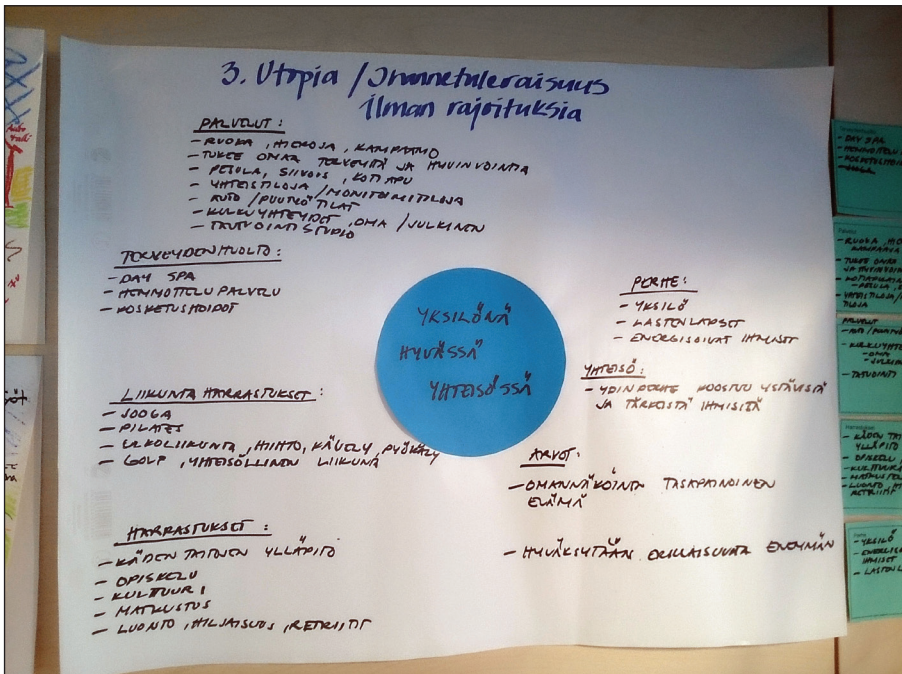 3. Utopia / Ihannetulevaisuus
ilman rajoituksia
PALVELUT:
- RUOKA, HIEROJA, KAMPAAMO
- TUKEE OMAA TERVEYTTÄ JA HYVINVOINTIA
- PESULA, SIIVOUS, KOTIAPU
- YHTEISTILOJA / MONITOIMITILOJA
- AUTO / PUUTYÖTILAT
- KULKUYHTEYDET, OMA / JULKINEN
- TATUOINTI STUDIO
TERVEYDENHUOLTO:
- DAY SPA
- HEMMOTTELU PALVELU
- KOSKETUSHOIDOT
LIIKUNTA HARRASTUKSET:
- JOOGA
- PILATES
- ULKOLIIKUNTA, HIIHTO, KÄVELY, PYÖRÄILY
- GOLF, YHTEISÖLLINEN LIIKUNTA
HARRASTUKSET:
- KÄDEN TAITOJEN YLLÄPITO
- OPISKELU
- KULTTUURI
- MATKUSTUS
- LUONTO, HILJAISUUS, RETRIITIT
YKSILÖNÄ
HYVÄSSÄ
YHTEISÖSSÄ
PERHE:
- YKSILÖ
- LASTENLAPSET
- ENERGISOIVAT IHMISET
YHTEISÖ:
- YDINPERHE KOOSTUU YSTÄVISTÄ
JA TÄRKEISTÄ IHMISISTÄ
ARVOT:
- OMANNÄKÖINEN TASAPAINOINEN
ELÄMÄ
- HYVÄKSYTÄÄN ERILAISUUTTA ENEMMÄN
- DAY SPA
- HEMMOTTELU
Palvelut
- RUOKA, HI
- TUKEE OMAA
JA HYVINVOI
- YHTEISTILOJA /
TILOJA
PALVELUT
- KULKUYHTE
- OMA
- TATUOINTI
Harrastukset
- KÄDEN TAI
YLLÄPITO
- OPISKELU
- KULTTUURI
- MATKUSTEL
- LUONTO, HI
RETRIITIT
Perhe
- YKSILÖ
- ENERGISO
IHMISET
- LASTENL